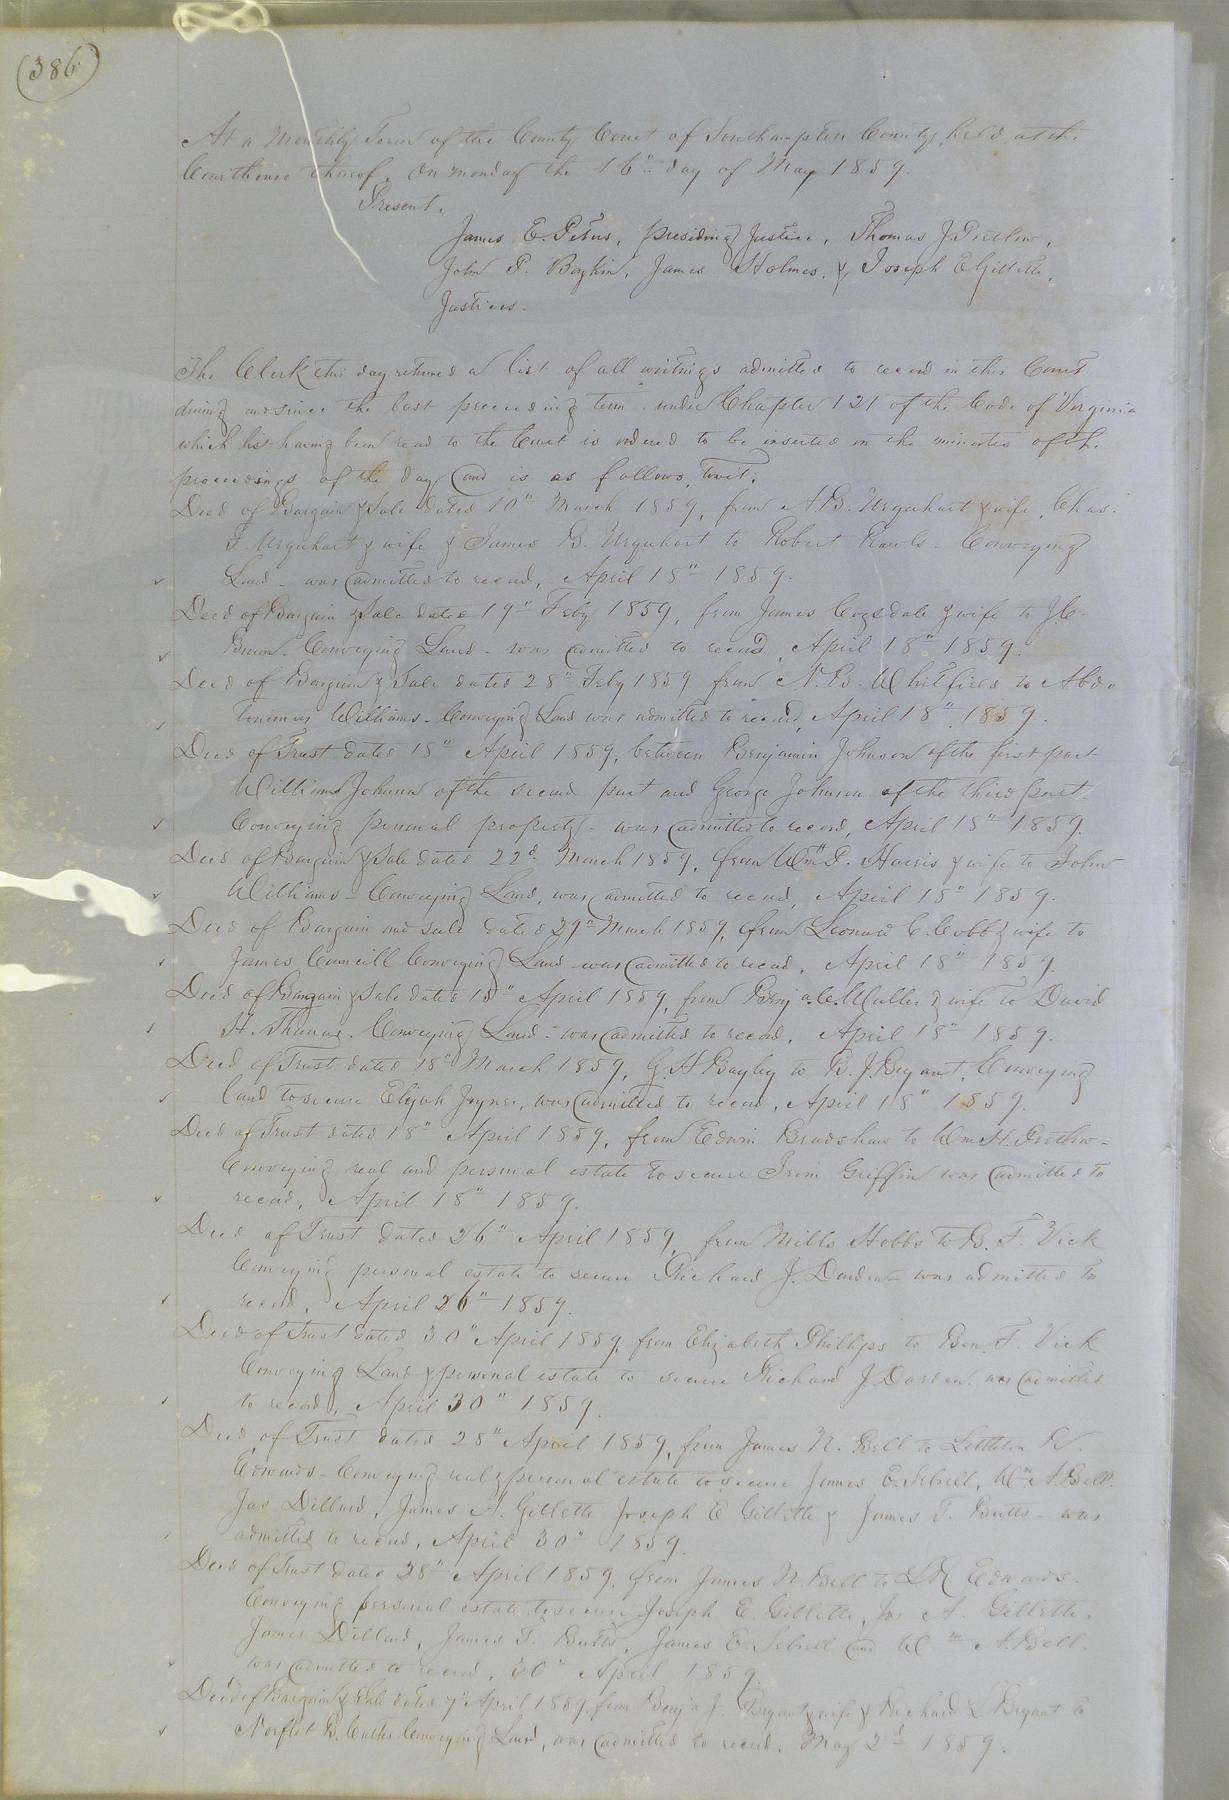 (386)
At a Monthly Term of the County Court of Southampton County, held at the
Courthouse thereof, On monday the 16" day of May 1859.
Present,
James E. Peters, presiding Justice, Thomas J Pretlow,
John P. Boykin, James Holmes, & Joseph E Gillette,
Justices.
The Clerk this day returned a list of all writings admitted to record in this Court
during and since the last preceeding term under Chapter 121 of the Code of Virginia
which list having been read to the Court is ordered to be inserted in the minutes of the
proceedings of the day and is as follows, towit:
Deed of Bargain & Sale dated 10" March 1859, from A.B. Urquhart & wife, Chas.
F. Urquhart & wife & James B. Urquhart to Robert Rawls - Conveying
Land - was admitted to record, April 18" 1859.
Deed of Bargain & Sale dated 19" Feby 1859, from James Cogsdale & wife to J.C.
Conveying Land - was admitted to record, April 18" 1859.
Deed of Bargain & Sale dated 28" Feby 1859 from N.B. Whitfield to
Williams - Conveying Land was admitted to record, April 18" 1859.
Deed of Trust dated 18" April 1859, between Benjamin Johnson of the first part
William Johnson of the second part and George Johnson of the third part.
Conveying personal property - was admitted to record, April 18" 1859.
Deed of Bargain & Sale dated 22d March 1859, from Wm P. Harris & wife to John
Williams - Conveying Land, was admitted to record, April 18" 1859.
Deed of Bargain and sale dated 29" March 1859, from Leonard C. Cobb & wife to
James Councill Conveying Land - was admitted to record, April 18" 1859.
Deed of Bargain & Sale dated 18" April 1859, from Benj a. C. & wife to David
H. Thomas. Conveying Land - was admitted to record, April 18" 1859.
Deed of Trust dated 18" March 1859, G. H Bagley to B. J. Bryant, Conveying
land to secure Elijah Joyner, was admitted to record, April 18" 1859.
Deed of Trust dated 18" April 1859, from Edwin Bradshaw to Wm H. Pretlow -
Conveying real and personal estate to secure Griffin was admitted to
record, April 18" 1859.
Deed of Trust dated 26" April 1859, from Mills Hobbs to B. F. Vick
Conveying personal estate to secure Richard J. Darden - was admitted to
record, April 26" 1859.
Deed of Trust dated 30" April 1859, from Elizabeth Phillips to Ben. F. Vick
Conveying Land & personal estate to secure Richard J Darden was admitted
to record, April 30" 1859.
Deed of Trust dated 28" April 1859, from James N. Bell to Littleton R.
Edwards - Conveying real & personal estate to secure James E. Sebrell, Wm A. Bell.
Jas Dillard, James A. Gillette Joseph E Gillette & James T. Butts - was
admitted to record, April 30" 1859.
Deed of Trust dated 28" April 1859, from James N. Bell to L R Edwards.
Conveying personal estate to secure Joseph E. Gillette, Jas A. Gillette.
James Dillard, James T. Butts, James E. Sebrell and Wm A. Bell.
was admitted to record, 30" April 1859
Deed of Bargain & Sale dated 7" April 1859, from Benj'a J. Bryant & wife & Richard L Bryant to
Norflet B. Conveying Land, was admitted to record, May 2d 1859.